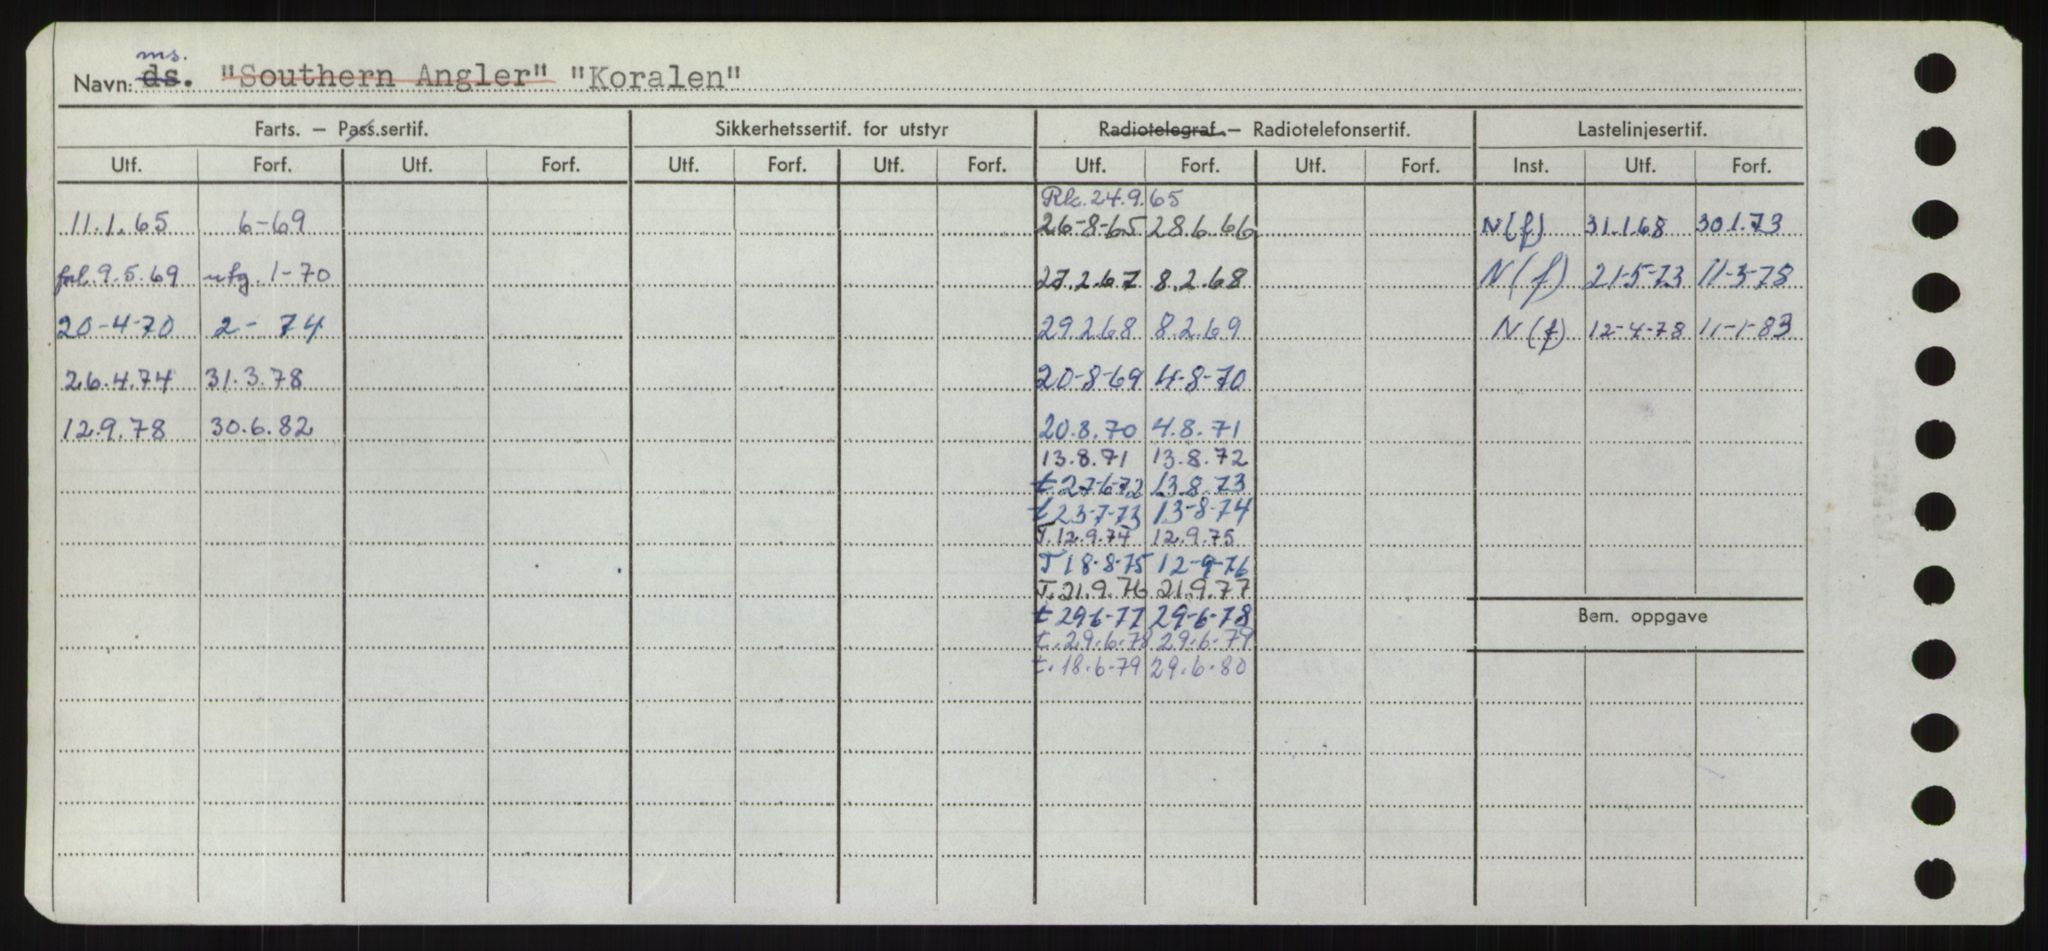 ms.
Navn: ds. "Southern Angler" "Koralen"
Farts. – Pass.sertif. Sikkerhetssertif. for utstyr Radiotelegraf – Radiotelefonsertif. Lastelinjesertif.
Utf. Forf. Utf. Forf. Utf. Forf. Utf. Forf. Utf. Forf. Utf. Forf. Inst. Utf. Forf.
Rk. 24.9.65
11.1.65 6-69 26-8-65 28.6.66 N(f) 31.1.68 30.1.73
forl. 9.5.69 utg. 1-70 27.2.67 8.2.68 N(f) 21-5-73 11-3-78
20-4-70 2- 74 29.2.68 8.2.69 N(f) 12-4-78 11-1-83
26.4.74 31.3.78 20-8-69 4-8-70
12.9.78 30.6.82 20.8.70 4.8.71
13.8.71 13.8.72
t 27-6-72 13.8.73
t 23-7-73 13-8-74
T. 12.9.74 12.9.75
T 18-8-75 12-9-76
T. 21.9.76 21.9.77
t 29-6-77 29-6-78
t. 29.6.78 29.6.79
t. 18.6-79 29.6.80
Bem. oppgave